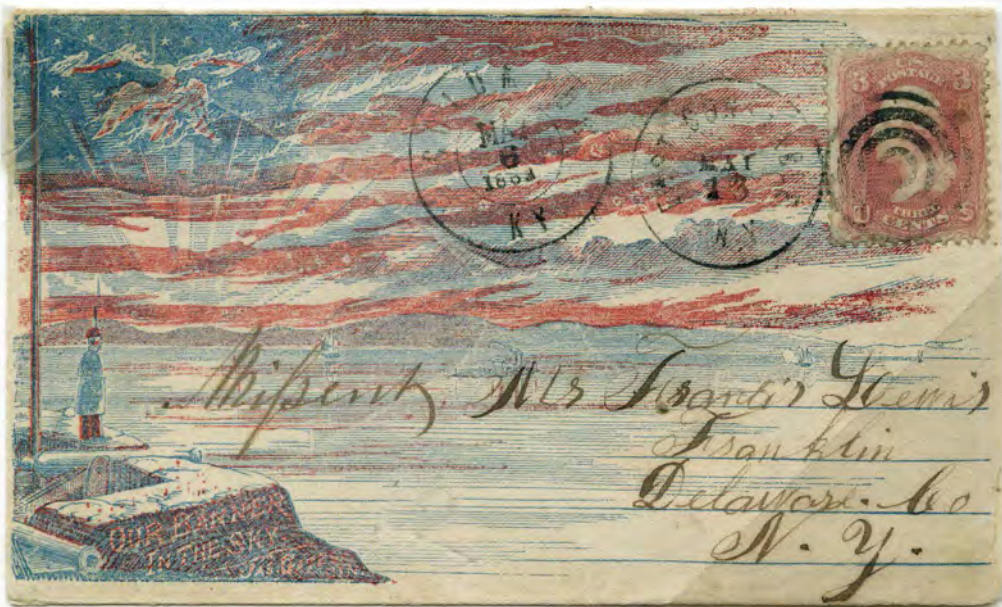 MAY
6
1864
N Y
MAY
13
N Y
U.S.
POSTAGE
3 3
U S
THREE
CENTS
Missent
Mr Francis Lewis
Franklin
Delaware Co
N. Y.
OUR BANNER
IN THE SKY